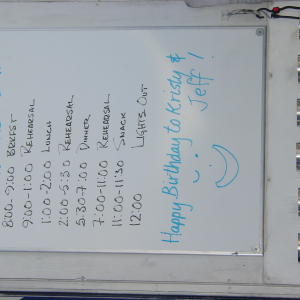 8:00-9:00 BRKFST
9:00-1:00 REHEARSAL
1:00-2:00 LUNCH
2:00-5:30 REHEARSAL
5:30-7:00 DINNER
7:00-11:00 REHEARSAL
11:00-11:30 SNACK
12:00 LIGHTS OUT
Happy Birthday to Kristy &
Jeff!